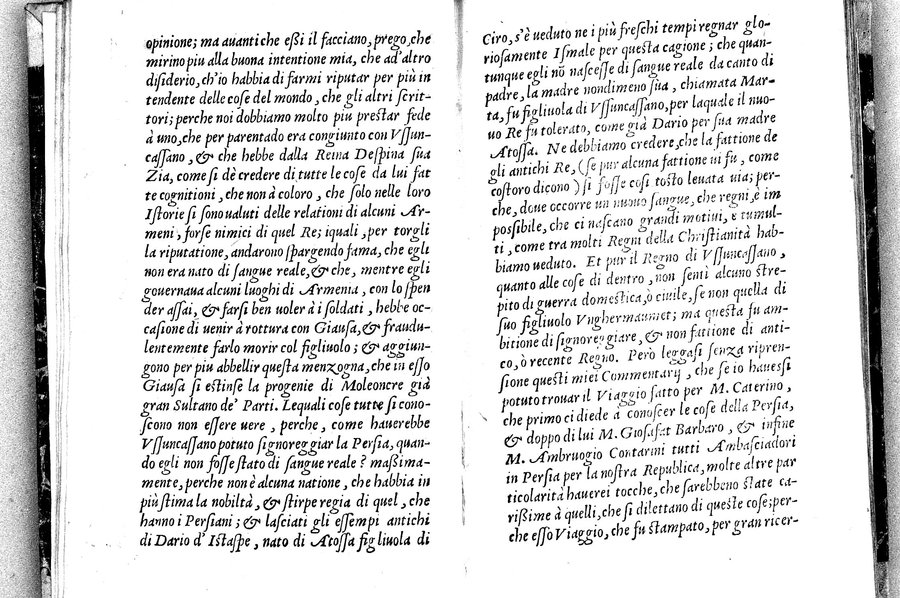 opinione; ma auanti che eßi il facciano, prego, che
mirino piu alla buona intentione mia, che ad altro
disiderio, ch'io habbia di farmi riputar per più in
tendente delle cose del mondo, che gli altri scrit-
tori; perche noi dobbiamo molto piu prestar fede
à uno, che per parentado era congiunto con Vssun-
cassano, & che hebbe dalla Reina Despina sua
Zia, come si dè credere di tutte le cose da lui fat
te cognitioni, che non à coloro, che solo nelle loro
Istorie si sono ualuti delle relationi di alcuni Ar-
meni, forse nimici di quel Re; iquali, per torgli
la riputatione, andarono spargendo fama, che egli
non era nato di sangue reale, & che, mentre egli
gouernaua alcuni luoghi di Armenia, con lo spen
der assai, & farsi ben uoler à i soldati, hebbe oc-
casione di uenir à rottura con Giausa, & fraudu-
lentemente farlo morir col figliuolo; & aggiun-
gono per piu abbellir questa menzogna, che in esso
Giausa si estinse la progenie di Moleoncre già
gran Sultano de' Parti. Lequali cose tutte si cono-
scono non essere uere, perche, come hauerebbe
Vssuncassano potuto signoreggiar la Persia, quan-
do egli non fosse stato di sangue reale? maßima-
mente, perche non è alcuna natione, che habbia in
più stima la nobiltà, & stirpe regia di quel, che
hanno i Persiani; & lasciati gli essempi antichi
di Dario d' Istaspe, nato di Atossa figliuola di
Ciro, s'è ueduto ne i più freschi tempi regnar glo-
riosamente Ismale per questa cagione; che quan-
tunque egli nō nascesse di sangue reale da canto di
padre, la madre nondimeno sua, chiamata Mar-
ta, fu figliuola di Vssuncassano, per laquale il nuo-
uo Re fu tolerato, come già Dario per sua madre
Atossa. Ne debbiamo credere, che la fattione de
gli antichi Re, (se pur alcuna fattione ui fu, come
costoro dicono) si fosse così tosto leuata uia; per-
che, doue occorre un nuouo sangue, che regni, è im
possibile, che ci nascano grandi motiui, e tumul-
ti, come tra molti Regni della Christianità hab-
biamo ueduto. Et pur il Regno di Vssuncassano,
quanto alle cose di dentro, non sentì alcuno stre-
pito di guerra domestica, ò ciuile, se non quella di
suo figliuolo Vngher maumet; ma questa fu am-
bitione di signoreggiare, & non fattione di anti-
co, ò recente Regno. Però leggasi senza ripren-
sione questi miei Commentarij, che se io hauessi
potuto trouar il Viaggio fatto per M. Caterino,
che primo ci diede à conoscer le cose della Persia,
& doppo di lui M. Giosafat Barbaro, & infine
M. Ambruogio Contarini tutti Ambasciadori
in Persia per la nostra Republica, molte altre par
ticolarità hauerei tocche, che sarebbeno state ca-
rißime à quelli, che si dilettano di queste cose; per-
che esso Viaggio, che fu stampato, per gran ricer-